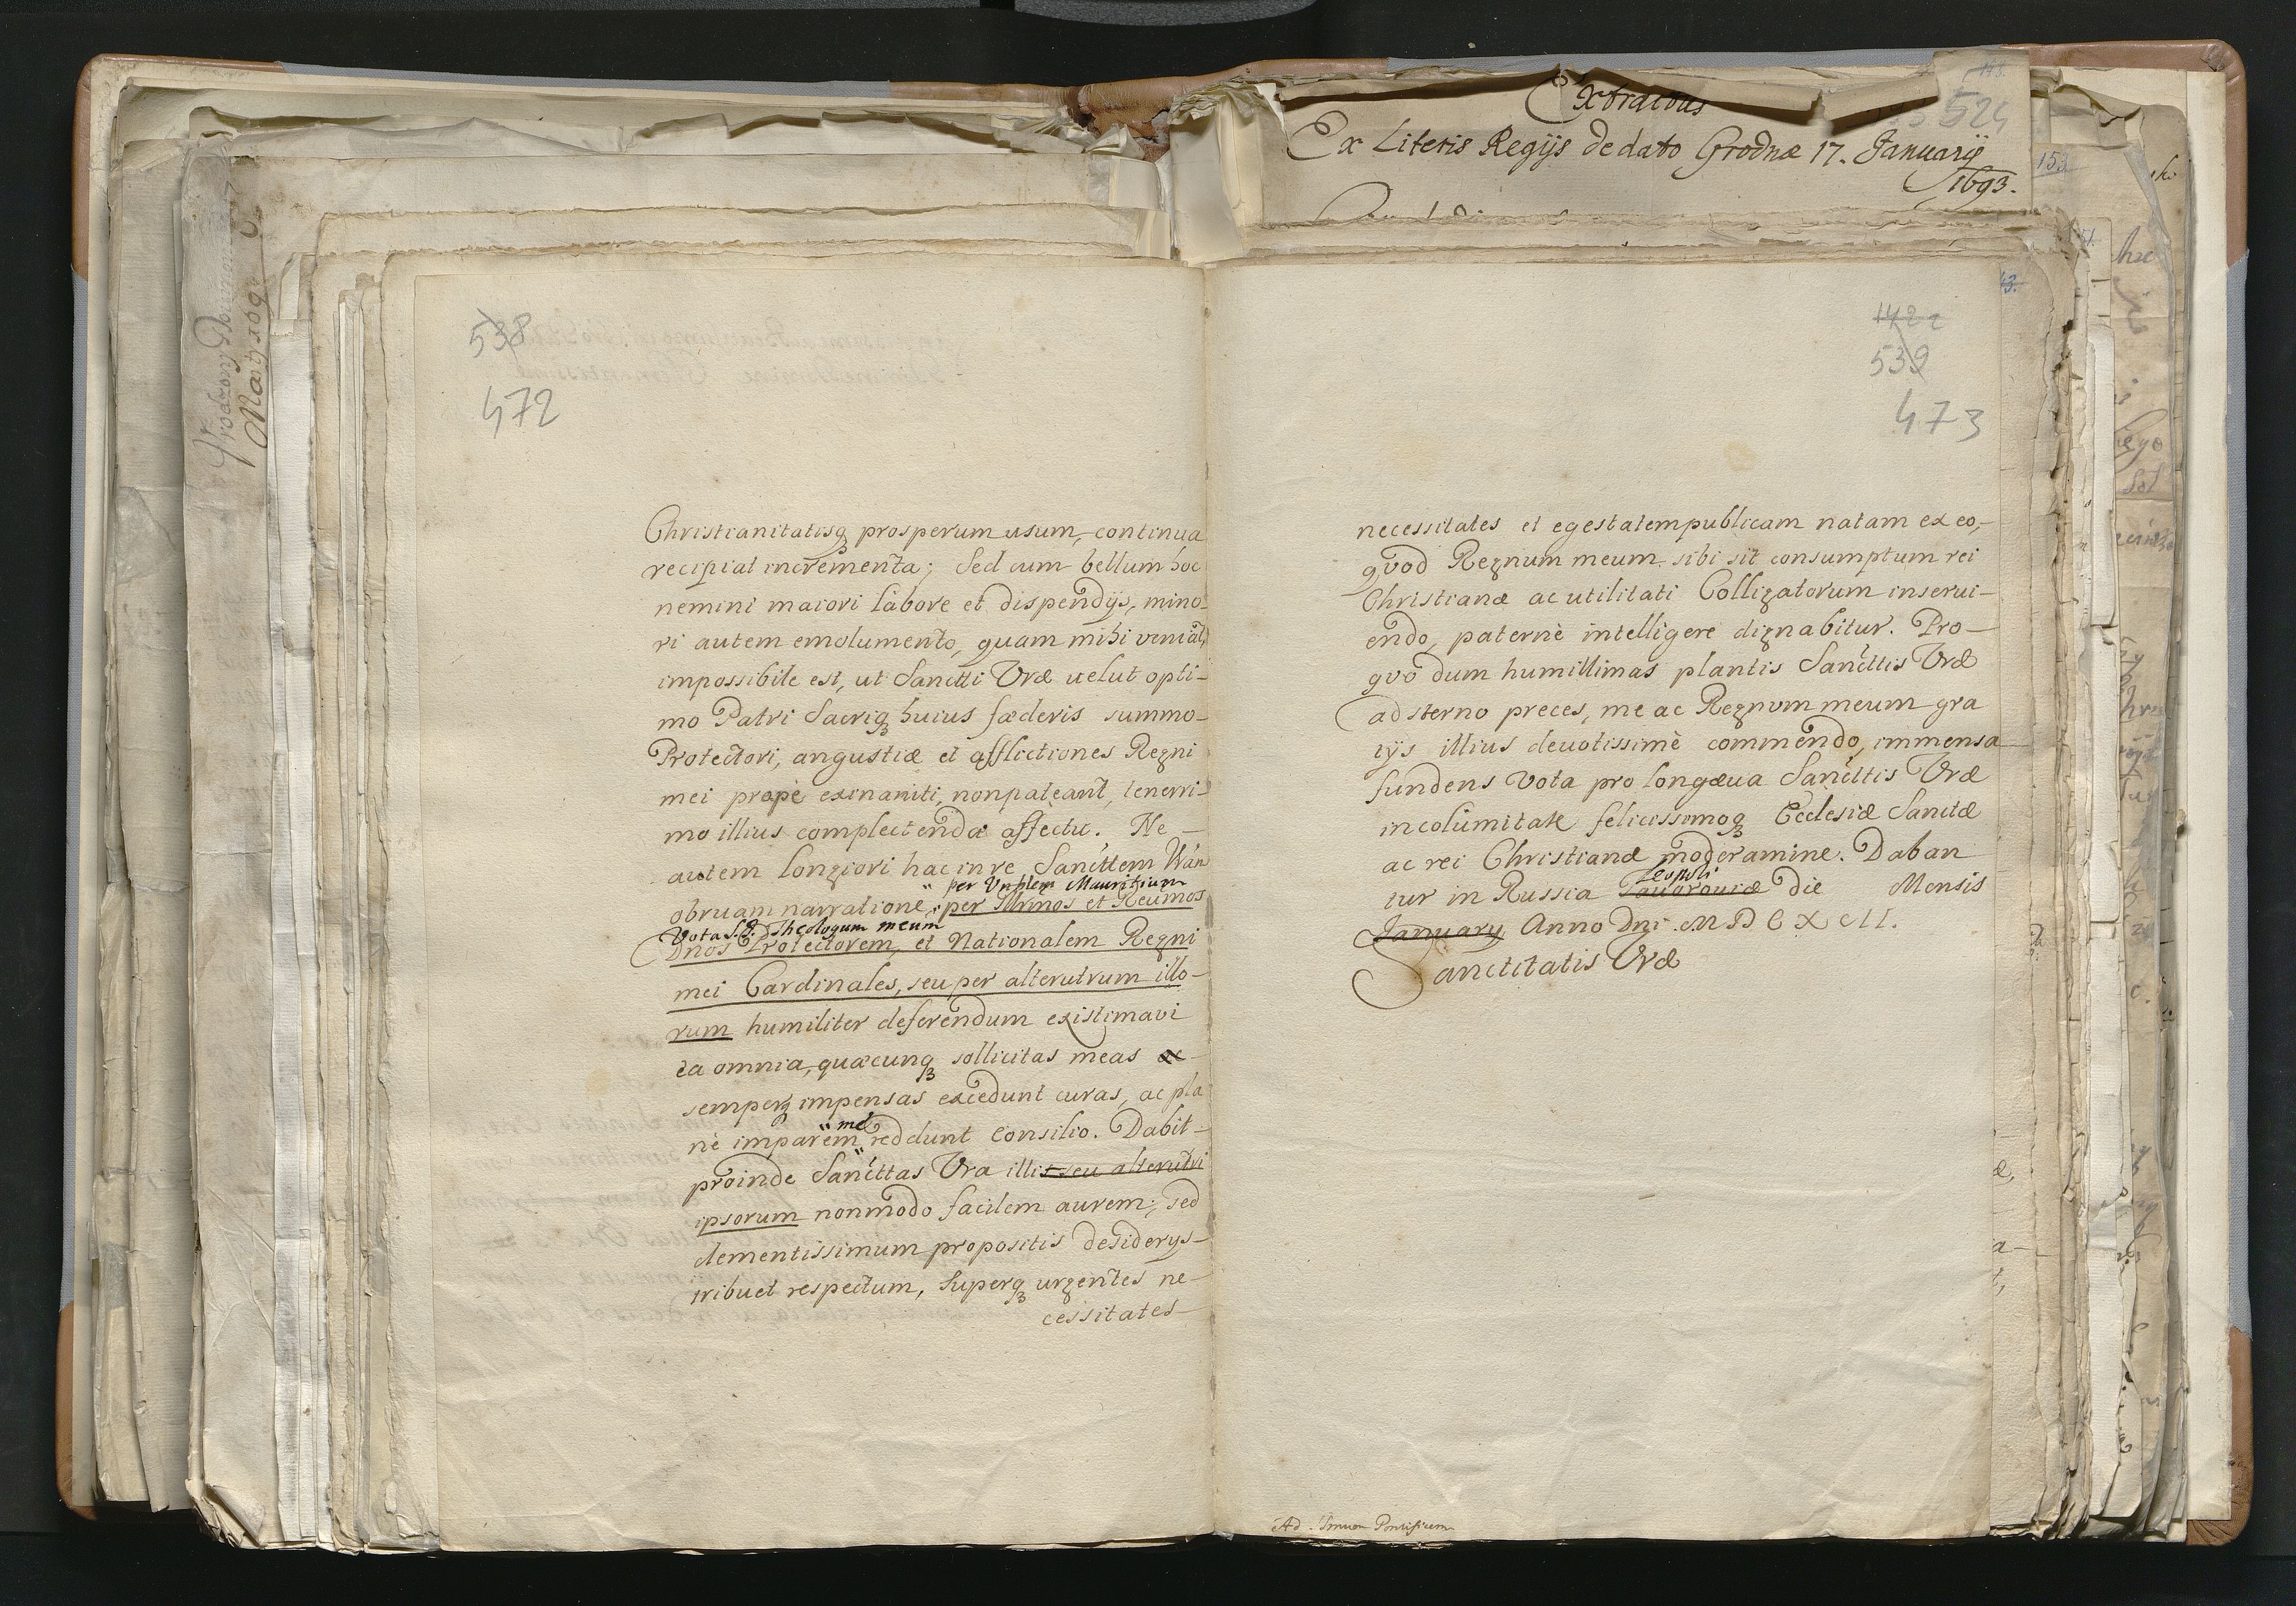 Extractus
Ex Literis Regijs de dato Grodnæ 17. Januarij
1693.
524
153
538
472
Christianitatisq3 prosperum usum, continua
recipiat incrementa; Sed cum bellum hoc
nemini maiori labore et dispendijs, mino-
ri autem emolumento, quam mihi veniat,
impossibile est, ut Sanctti Vræ uelut opti-
mo Patri Sacriq3 huius fæderis summo-
Protectori, angustiæ et afflictiones Regni
mei propè exinaniti, non pateant, tenerri-
mo illius complectendæ affectu. Ne-
autem longiori hac in re Sancttem Vram
obruam narratione, per Illrmos et Reumos
per Vnblem Mauritium
Vota S.T. Theologum meum
Dnos Protectorem, et Nationalem Regni
mei Cardinales, seu per alterutrum illo-
rum humiliter deferendum existimavi
ea omnia, quæcunq3 sollicitas meas ac
semperq3 impensas excedunt curas, ac pla
nè imparem me reddunt Consilio. Dabit-
proinde Sancttas Vra illis seu alterutri
ipsorum nonmodo facilem aurem; sed
clementissimum propositis desiderys-
tribuet respectum, Superq3 urgentes ne-
cessitates
43.
1422
539
473
necessitates et egestatem publicam natam ex eo,-
qvod Regnum meum sibi sit consumptum rei
Christianæ ac utilitati Colligatorum inserui-
endo, paternè intelligere dignabitur. Pro-
qvo dum humillimas plantis Sancttis Vræ
adsterno preces, me ac Regnvm meum gra
tijs illius deuotissimè commendo, immensa
fundens Vota pro longæua Sancttis Vræ
incolumitate felicissimoq3 Ecclesiæ Sanctæ
ac rei Christianæ moderamine. Daban
tur in Russia Iauorouiæ Leopoli die Mensis
January Anno Dni. M D C X C I I.
Sanctitatis Vræ
Ad Pontificem